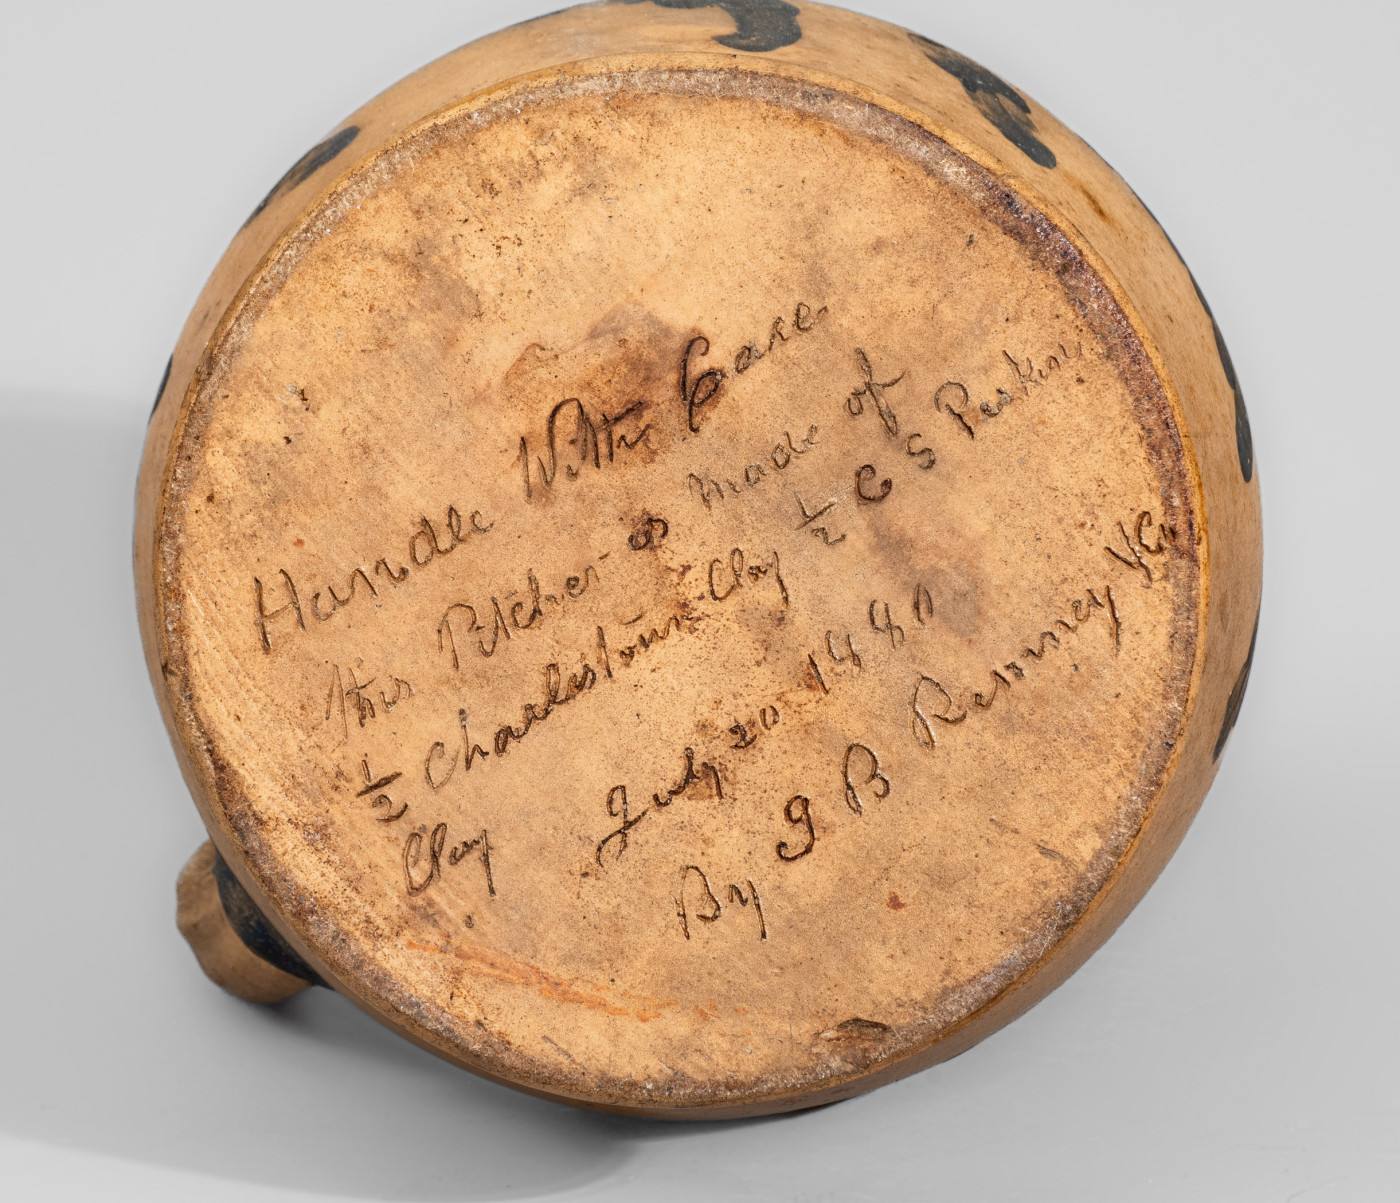 Handle With Care
this Pitcher is Made of
1/2 Charlestown Clay 1/2 C S Perkins
Clay July 20 1880
By G B Remney